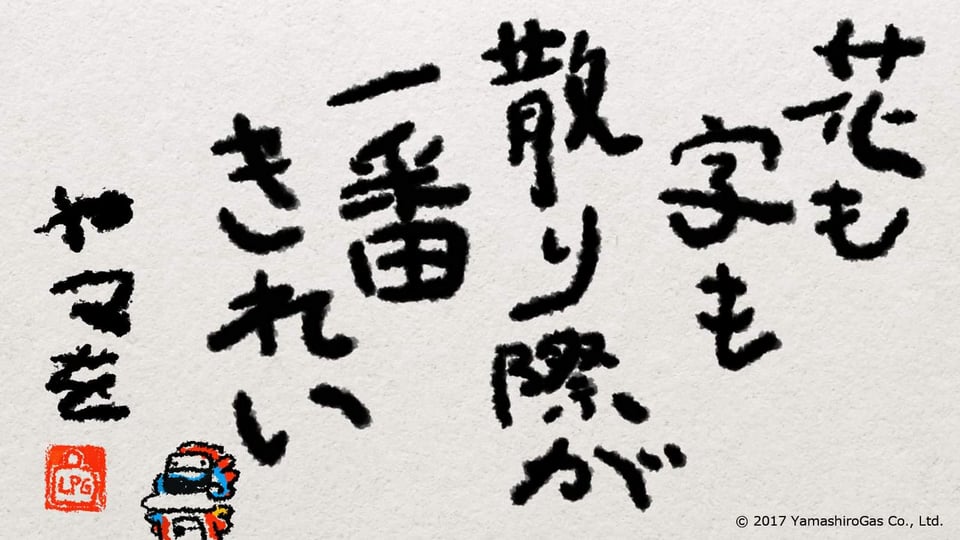 花も
字も
散り際が
一番
きれい
LPG
© 2017 YamashiroGas Co., Ltd.